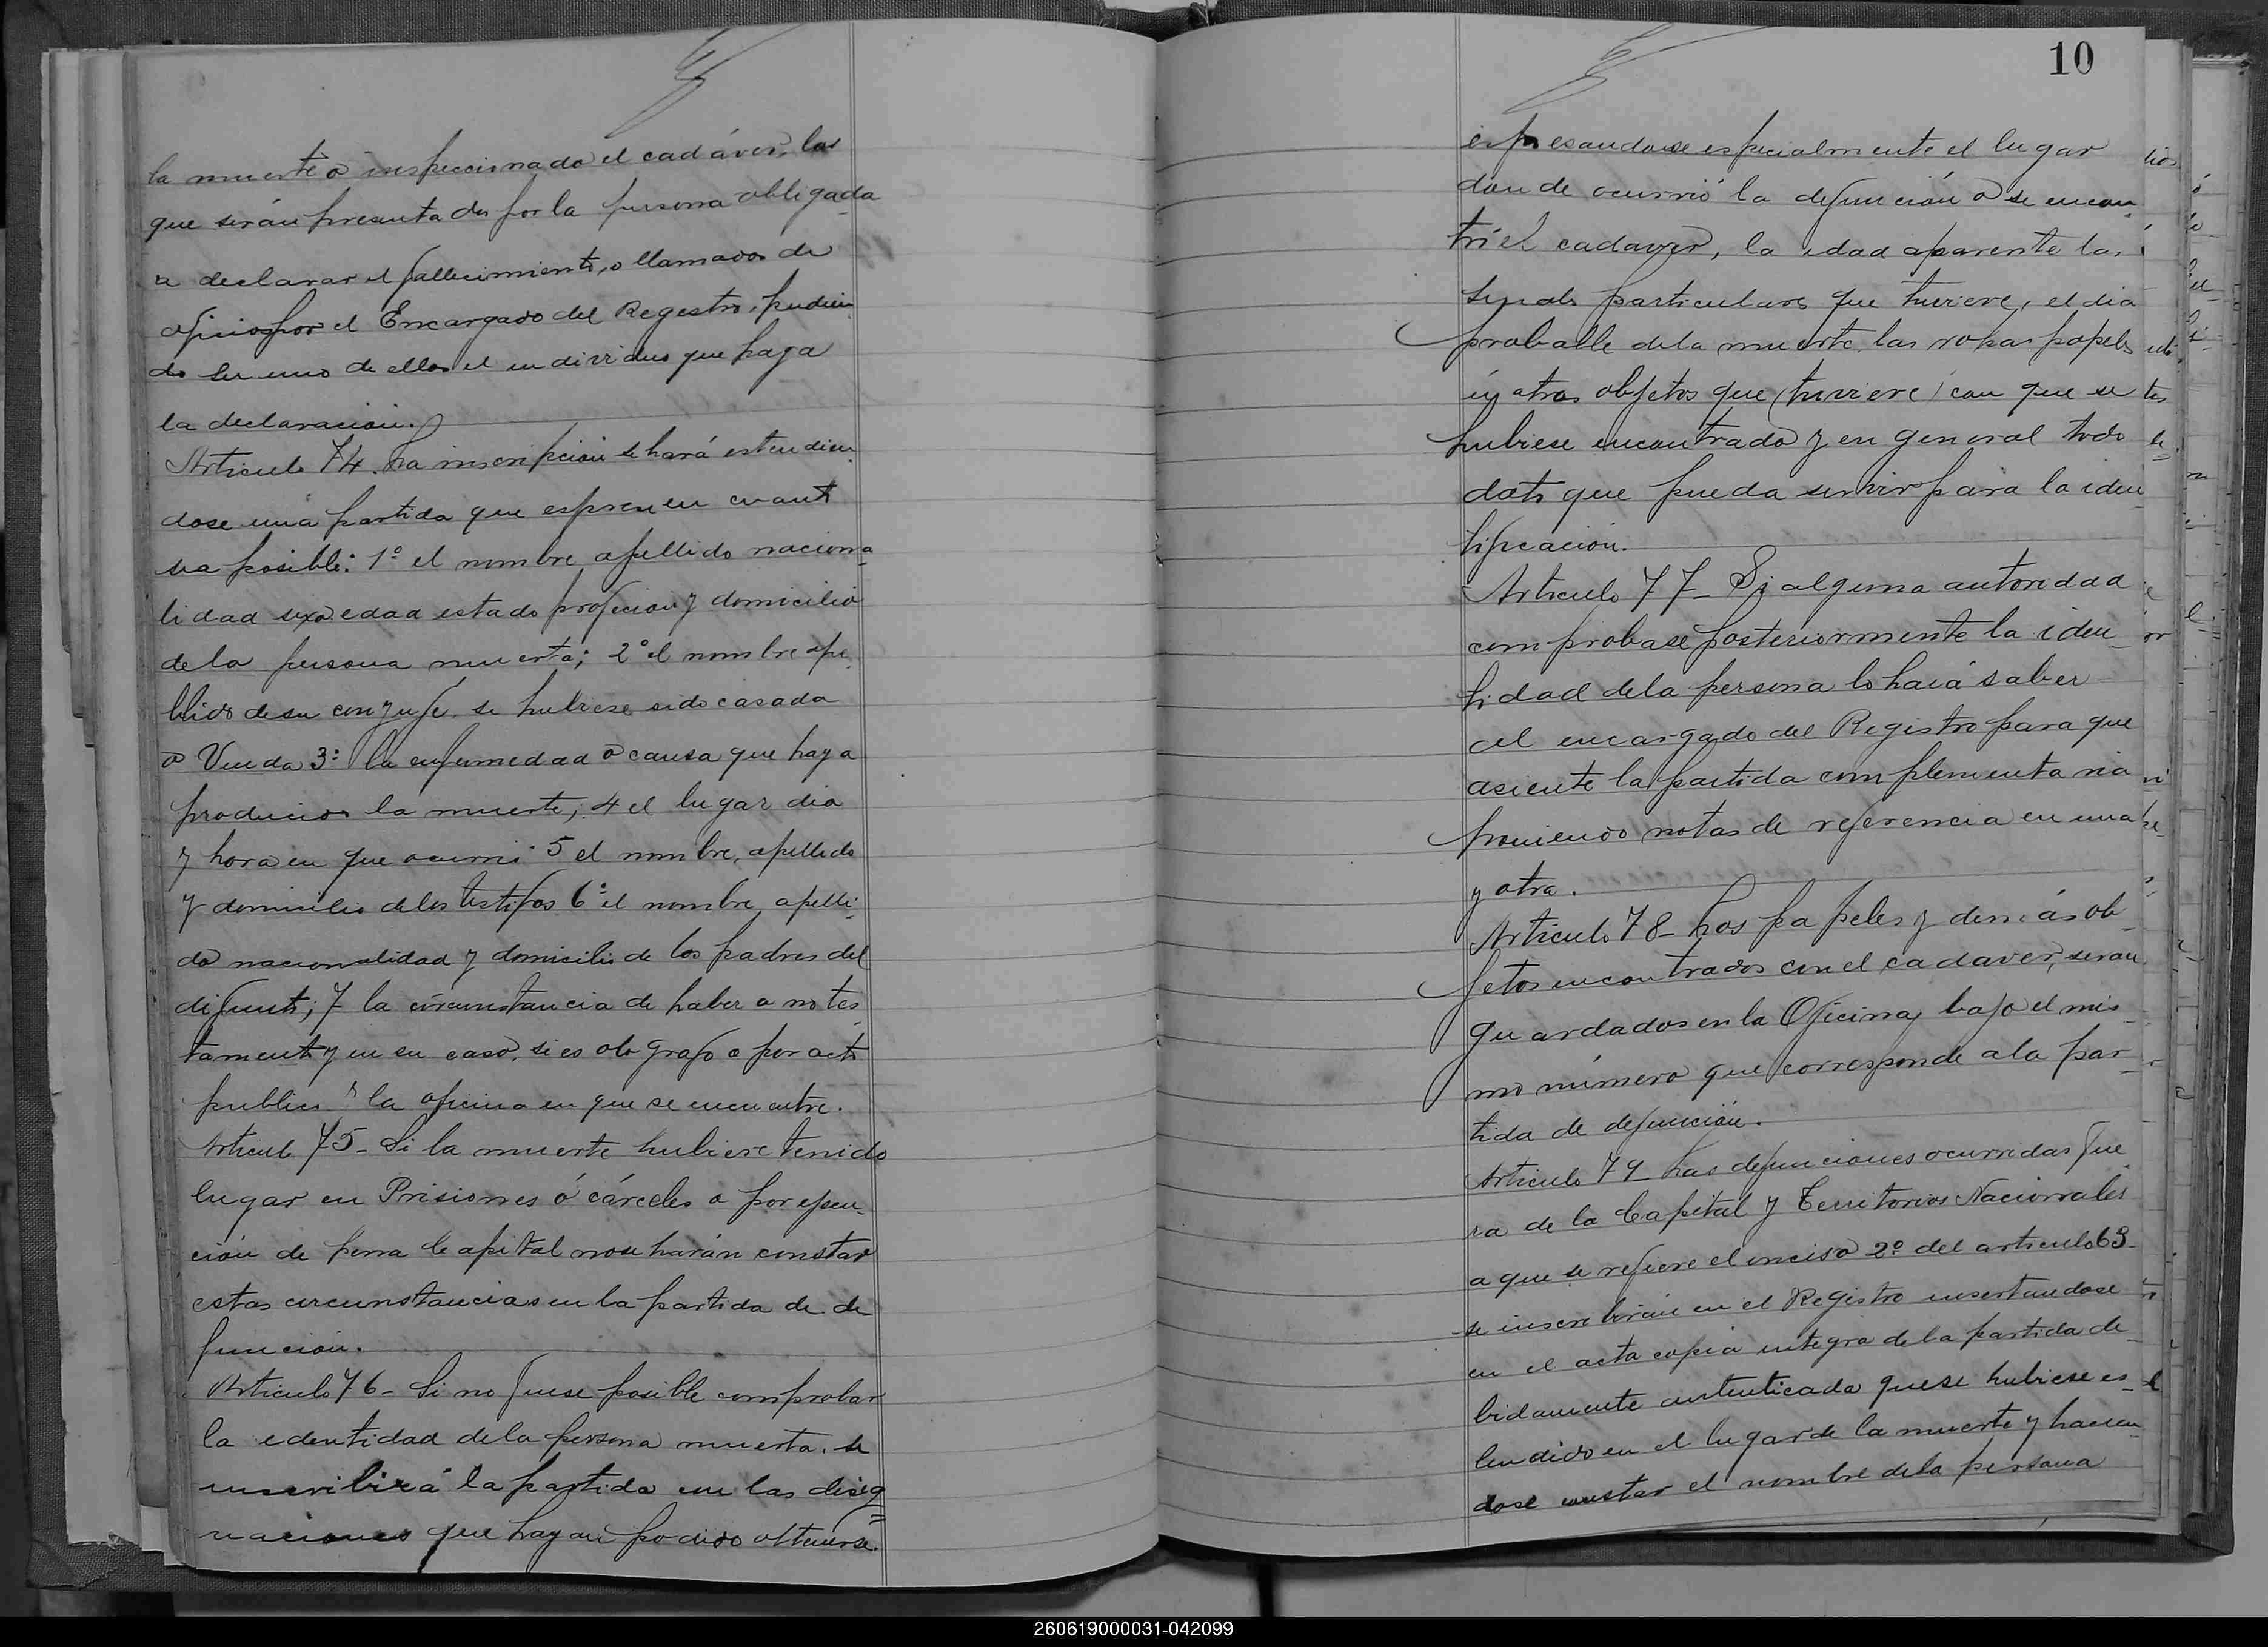 la muerte o inspeccionado el cadáver, los
que serán presentados por la persona obligada
a declarar el fallecimiento, o llamados de
oficio por el Encargado del Registro, pudien
do ser uno de ellos el individuo que haga
la declaración.
Articulo 74. La inscripción se hará estendien
dose una partida que espresen en cuanto
sea posible: 1º el nombre apellido naciona
lidad sexo edad estado profecion y domicilio
de la persona muerta; 2º el nombre ape
llido de su conyuje si hubiese sido casada
o Viuda 3º la enfermedad o causa que haya
producido la muerte; 4 el lugar dia
y hora en que ocurrió 5 el nombre, apellido
y domicilio de los testigos 6º el nombre, apelli-
do nacionalidad y domicilio de los padres del
difunto; 7 la circunstancia de haber o no tes
tamento y en su caso, si es olografo o por acto
publico y la oficina en que se encuentre.
Articulo 75- Si la muerte hubiere tenido
lugar en Prisiones ó cárceles o por ejecu
ción de pena Capital no se harán constar
estas circunstancias en la partida de de
función.
Articulo 76- Si no fuese posible comprobar
la identidad de la persona muerta, se
inscribirá la partida con las desig=
naciones que hayan podido obtenerse.
10
espresandose especialmente el lugar
donde ocurrió la defunción o se encon
tró el cadaver, la edad aparente las
señales particulares que tuviere, el dia
probable de la muerte las ropas papeles
ú otros objetos que (tuviere) con que se
hubiese encontrado y en general todo
dato que pueda servir para la iden
tificación.
Articulo 77- Si alguna autoridad
comprobase posteriormente la iden
tidad de la persona lo hará saber
al encargado del Registro para que
asiente la partida complementaria
poniendo notas de referencia en una
y otra.
Artículo 78- Los papeles y demás ob
jetos encontrados con el cadaver, seran
guardados en la Oficina, bajo el mis
mo número que corresponde a la par
tida de defunción.
Articulo 79- Las defunciones ocurridas fue
ra de la Capital y Territorios Nacionales
a que se refiere el inciso 2º del articulo 63
se inscribirán en el Registro insertandose
en el acta copia integra de la partida de
bidamente autenticada que se hubiese es
tendido en el lugar de la muerte y hacien
dose constar el nombre de la persona
260619000031-042099